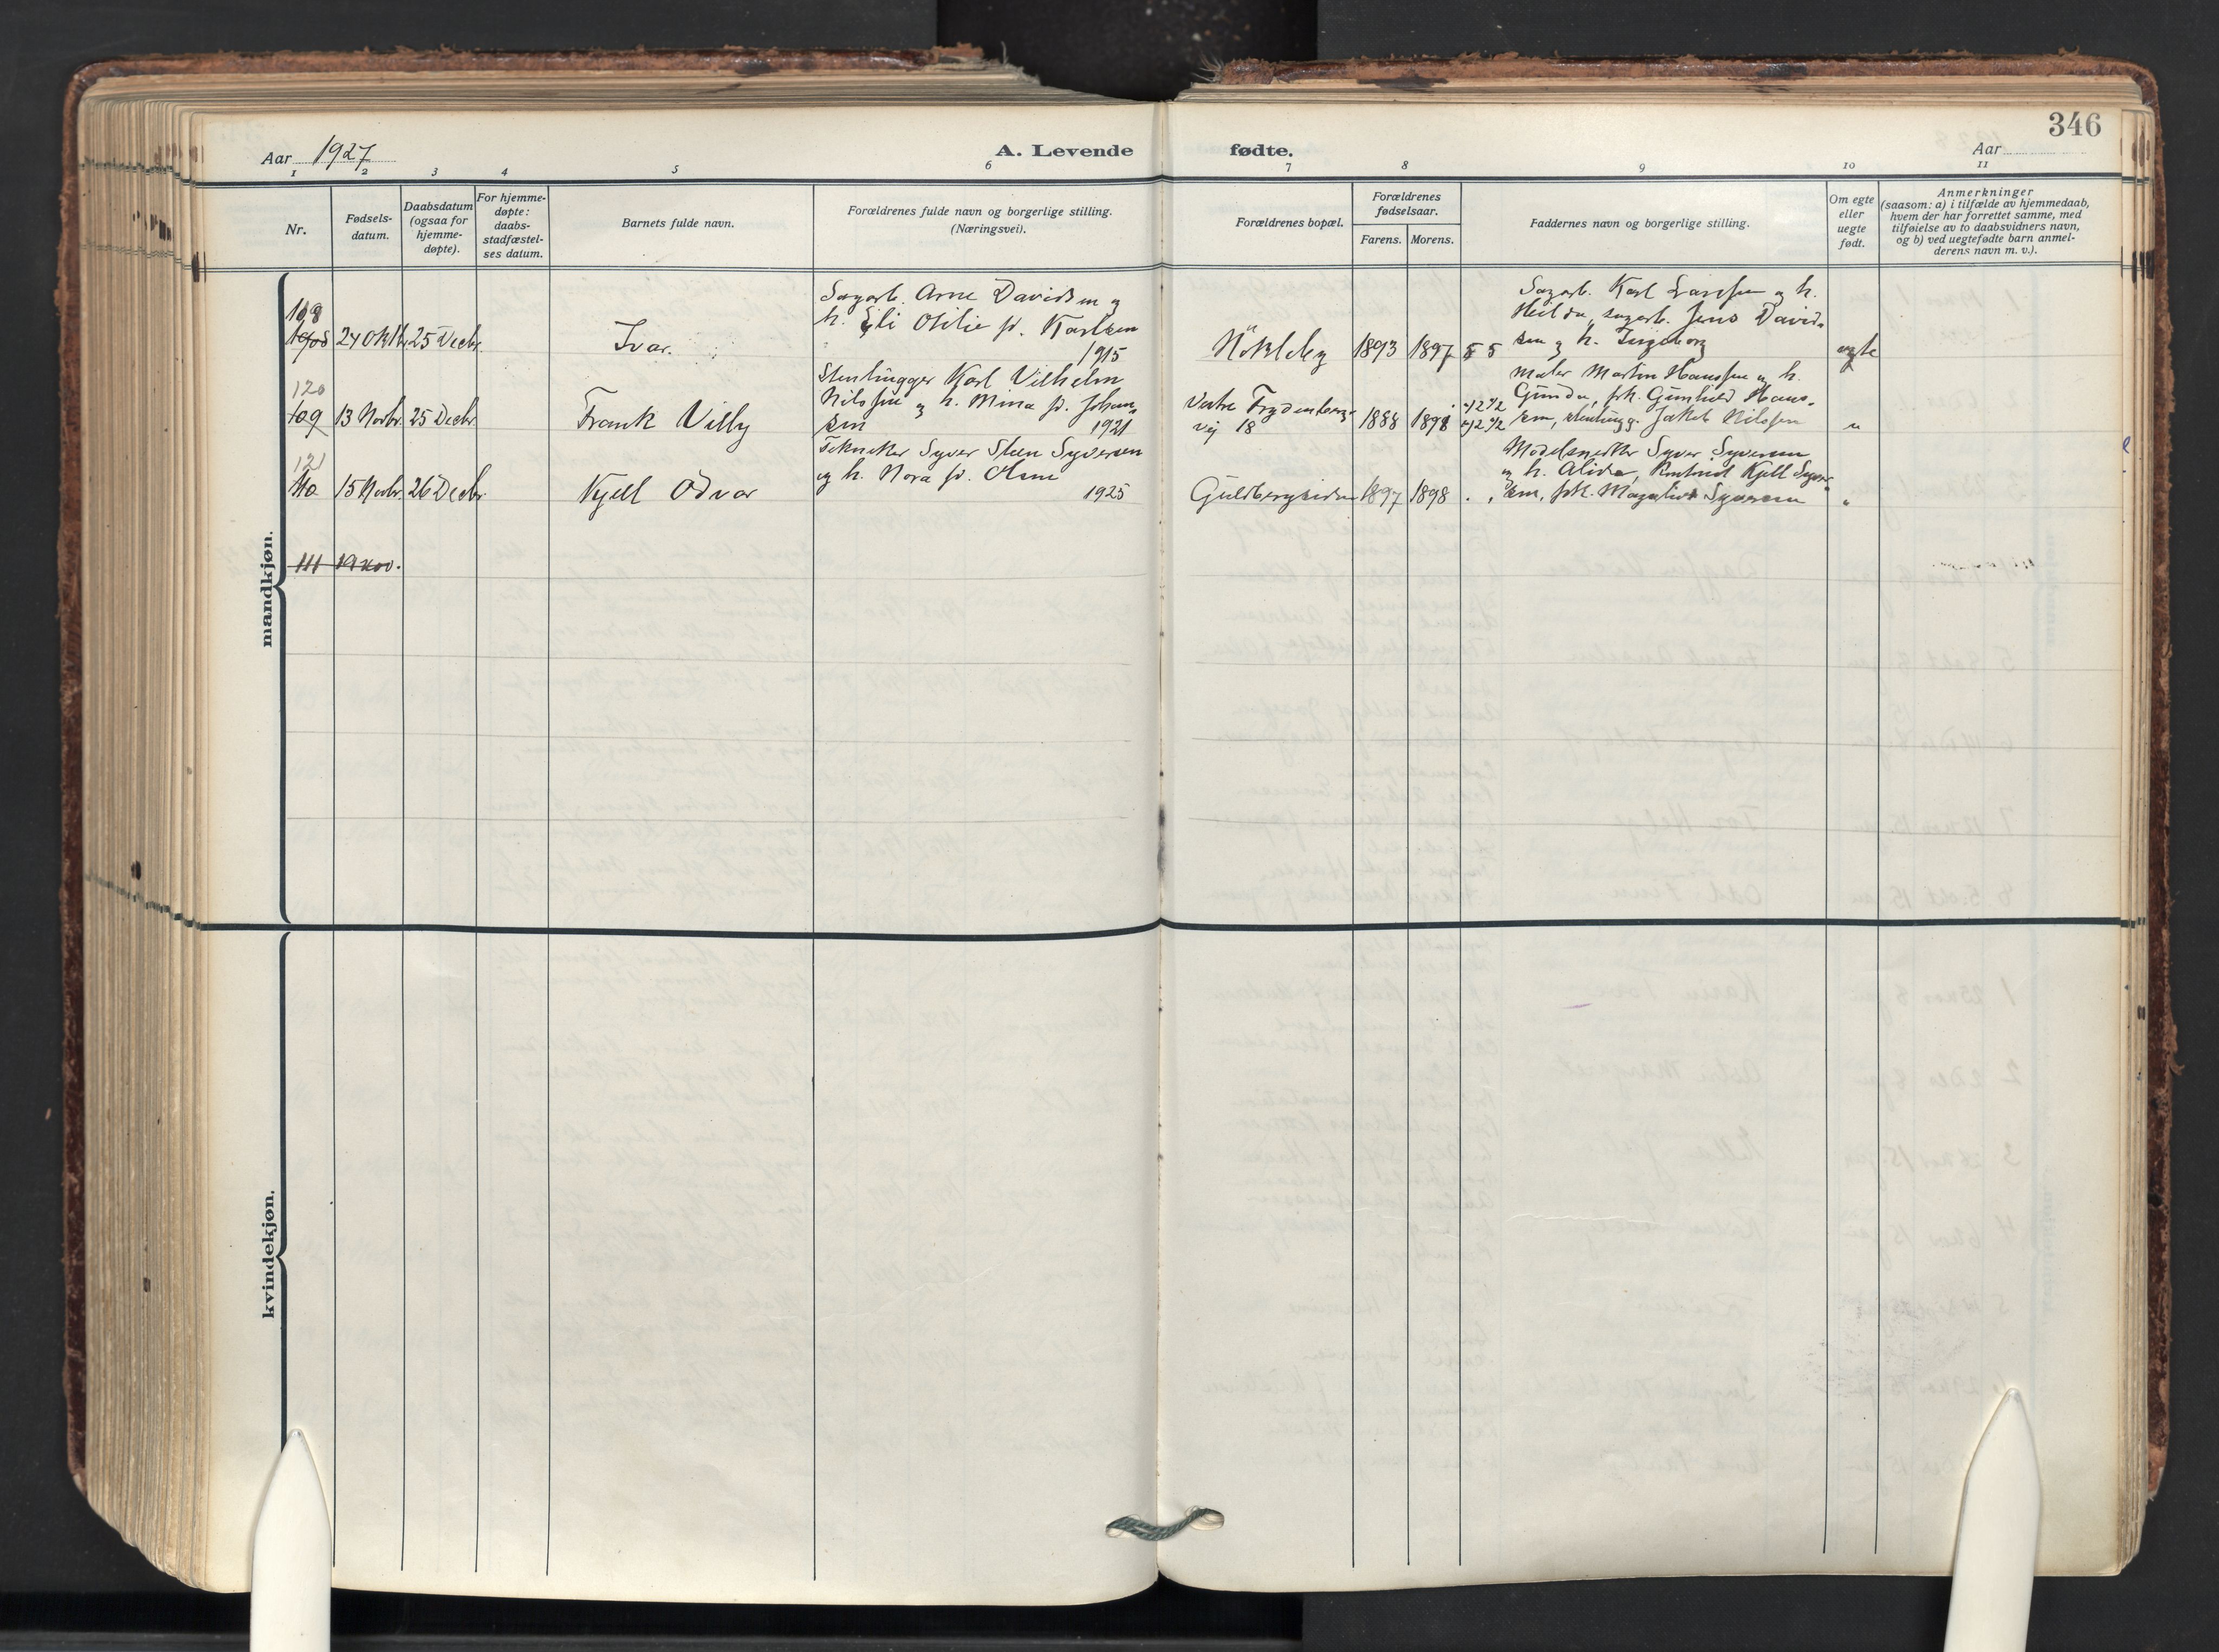 346
Aar 1927
A. Levende fødte.
Aar
1 2 3 4 5 6 7 8 9 10 11
Nr.
Fødsels-
datum.
Daabsdatum
(ogsaa for
hjemme-
døpte).
For hjemme-
døpte:
daabs-
stadfæstel-
ses datum.
Barnets fulde navn.
Forældrenes fulde navn og borgerlige stilling.
(Næringsvei).
Forældrenes bopæl.
Forældrenes
fødselsaar.
Farens. Morens.
Faddernes navn og borgerlige stilling.
Om egte
eller
uegte
født.
Anmerkninger
(saasom: a) i tilfælde av hjemmedaab,
hvem der har forrettet samme, med
tilføielse av to daabsvidners navn,
og b) ved uegtefødte barn anmel-
derens navn m. v.).
mandkjøn.
24 Oktbr. 25 Decbr.
Ivar.
Sagarb. Arne Davidsen og
h. Eli Otilie fd. Karlsen
1915
Nökleby
1893 1897 5 5
Sagarb. Karl Larssen og h.
Hilda, sagarb. Jens David-
sen og h. Ingeborg
egte
120
109 13 Novbr. 25 Decbr.
Frank Villy
Stenhugger Karl Vilhelm
Nilssen og h. Mina fd. Johan-
sen 1921
Vestre Frydenberg-
vej 18
1888 1898
Maler Martin Hanssen og h.
Gunda, frk. Gunhild Hans-
sen, stenhugg. Jakob Nilssen
"
121
110 15 Novbr. 26 Decbr.
Kjell Odvar
Tekniker Syver Steen Syversen
og h. Nora fd. Olsen
1925
Guldbergsiden
1897 1898
Modelsnedker Syver Syversen
og h. Alida, Kjell Syver-
sen, frk. Syversen
"
111 19 nov.
kvindekjøn.